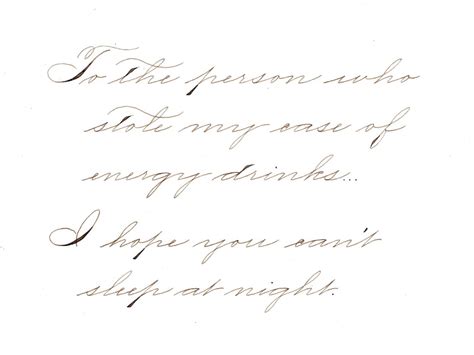 To the person who
stole my case of
energy drinks...
I hope you can't
sleep at night.